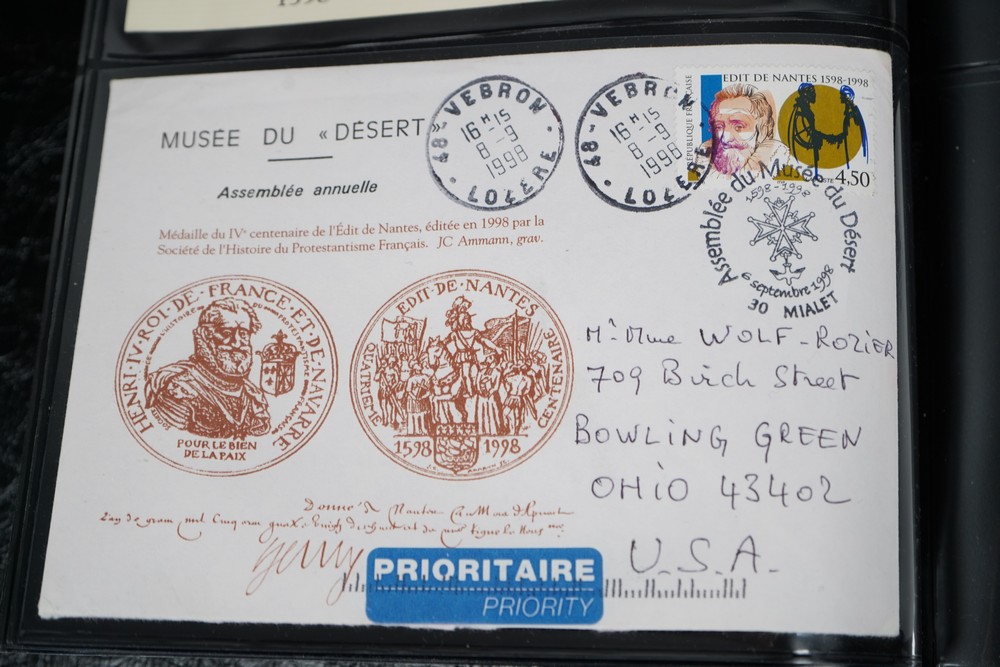 1598
MUSÉE DU « DÉSERT
Assemblée annuelle
Médaille du IVe centenaire de l'Édit de Nantes, éditée en 1998 par la
Société de l'Histoire du Protestantisme Français. JC Ammann, grav.
48 - VEBRON
16 H 15
8 - 9
1998
LOZERE
48 - VEBRON
16 H 15
8 - 9
1998
LOZERE
EDIT DE NANTES 1598-1998
RÉPUBLIQUE FRANÇAISE
4,50
Assemblée du Musée du Désert
1598-1998
6 septembre 1998
30 MIALET
HENRI·IV·ROI·DE·FRANCE·ET·DE·NAVARRE
POUR LE BIEN
DE LA PAIX
EDIT·DE·NANTES
QUATRIEME
CENTENAIRE
1598 1998
Mr Mme WOLF-ROZIER
709 Birch Street
BOWLING GREEN
OHIO 43402
U.S.A.
PRIORITAIRE
PRIORITY